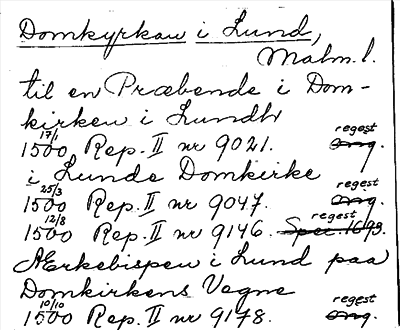 Domkyrkan i Lund,
Malm. l.
til en Præbende i Dom-
kirken i Lundh
17/1 regest
1500 Rep. II nr 9021. omg.
i Lunde Domkirke
25/3 regest
1500 Rep. II nr 9047. omg.
12/8 regest
1500 Rep. II nr 9146. Spec. 1693.
Ærkebispen i Lund paa
Domkirkens Vegne
10/10 regest
1500 Rep. II nr 9178. omg.